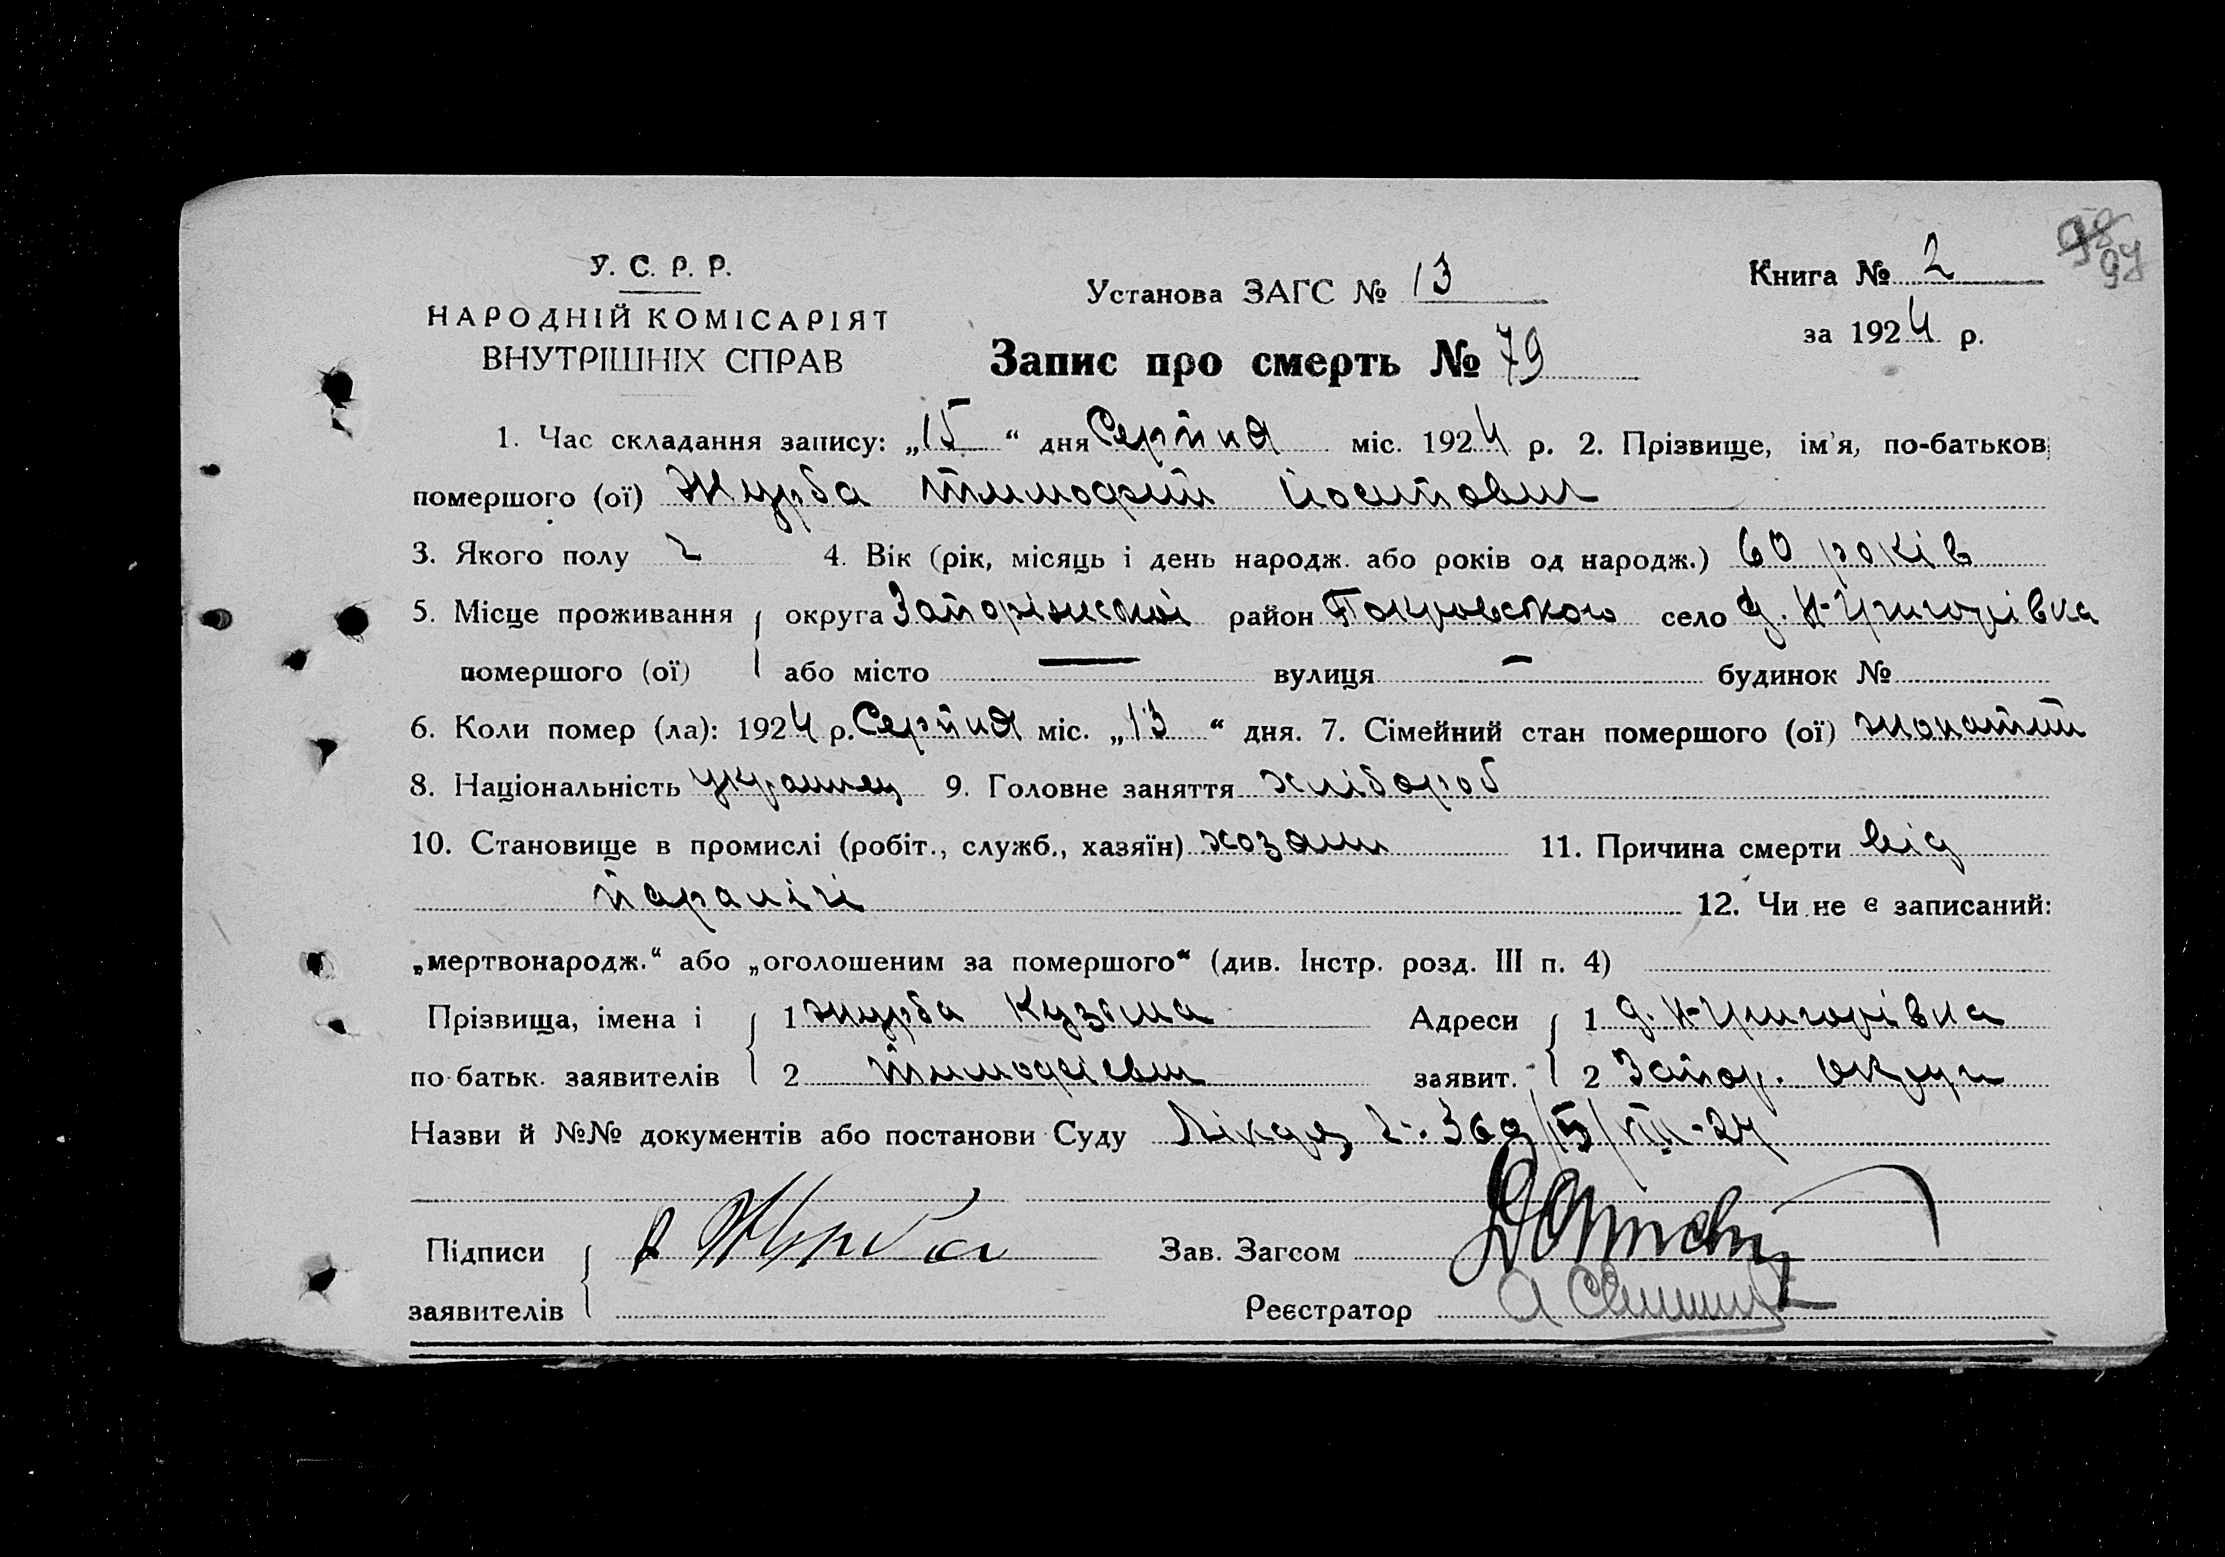 98
97
У. С. Р. Р.
НАРОДНІЙ КОМІСАРІЯТ
ВНУТРІШНІХ СПРАВ
Установа ЗАГС № 13
Книга № 2
за 1924 р.
Запис про смерть № 79
1. Час складання запису: „15“ дня Серпня міс. 1924 р. 2. Прізвище, ім'я, по-батькові
помершого (ої) Журба Тимофій Йосипович
3. Якого полу ч 4. Вік (рік, місяць і день народж. або років од народж.) 60 років
5. Місце проживання округа Запоріжської район Покровського село д. Н-Григорівка
помершого (ої) або місто — вулиця — будинок №
6. Коли помер (ла): 1924 р. Серпня міс. „13“ дня. 7. Сімейний стан помершого (ої) жонатий
8. Національність українец 9. Головне заняття хлібороб
10. Становище в промислі (робіт., служб., хазяїн) хозяин 11. Причина смерти від
паралічі 12. Чи не є записаний:
„мертвонародж.“ або „оголошеним за помершого“ (див. Інстр. розд. III п. 4)
Прізвища, імена і 1 Журба Кузьма Адреси 1 д. Н-Григорівка
по-батьк. заявителів 2 Тимофієвич заявит. 2 Запор. округи
Назви й №№ документів або постанови Суду VIII-24
Підписи Журба Зав. Загсом
заявителів Реєстратор